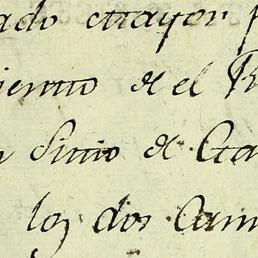 ado mayor
iento de el R
Sitio de Cta
los dos Cam